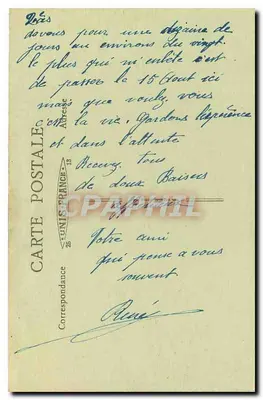 devons pour une dizaine de
jours au environs du vingt
le plus qui m'enbête c'est
de passer le 15 Aout ici
mais que voulez vous
c'est la vie. Gardons l'espérance
et dans l'attente
Recevez tous
de doux Baisers
Votre ami
qui pense a vous
souvent
René
CARTE POSTALE
Correspondance
UNIS FRANCE
Adresse
CPAPHIL